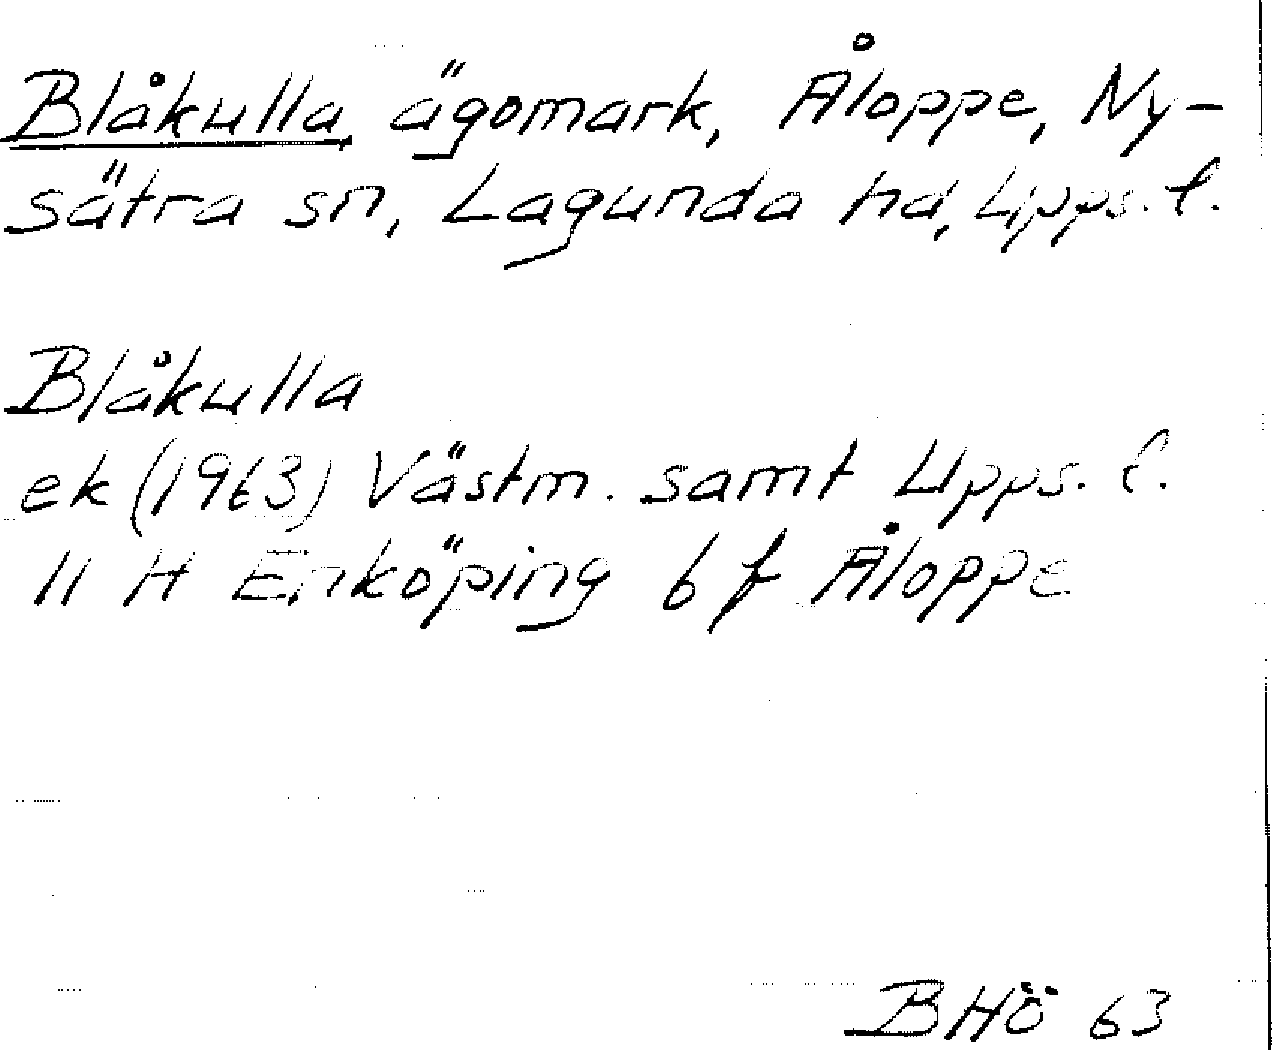 Blåkulla, ägomark, Åloppe, Ny-
sätra sn, Lagunda hd, Upps. l.
Blåkulla
ek (1963) Västm. samt Upps. l.
11 H Enköping 6 f Åloppe
BHÖ 63